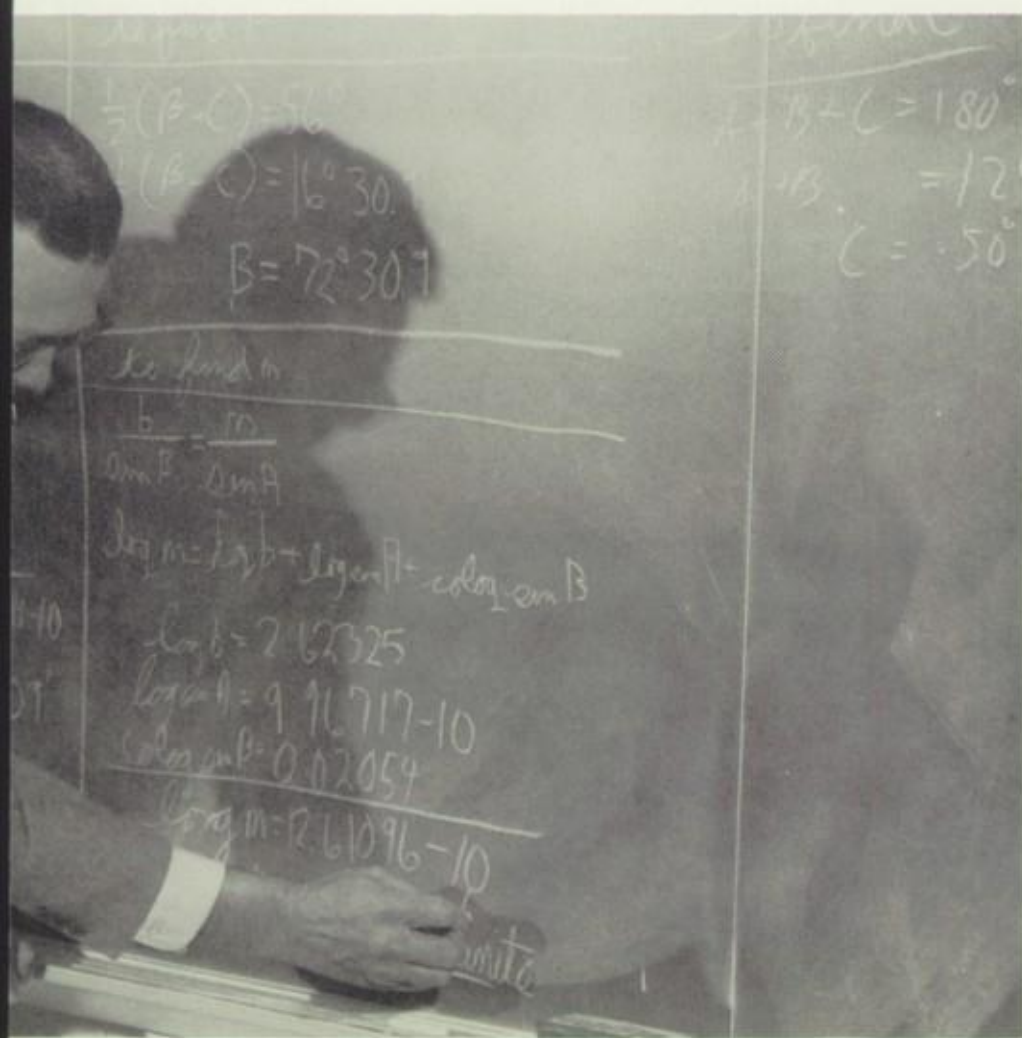 to find
½(B-C)=56°
(B-C)=16°30.
B=72°30.9
to find m
b/sin B = m/sin A
log m = log b + log sin A + colog sin B
log b = 2.62325
log sin A = 9.96717-10
colog sin B = 0.02054
log m = 12.61096-10
units
n-10
09'
to find C
A+B+C=180°
A+B =12
C = 50°